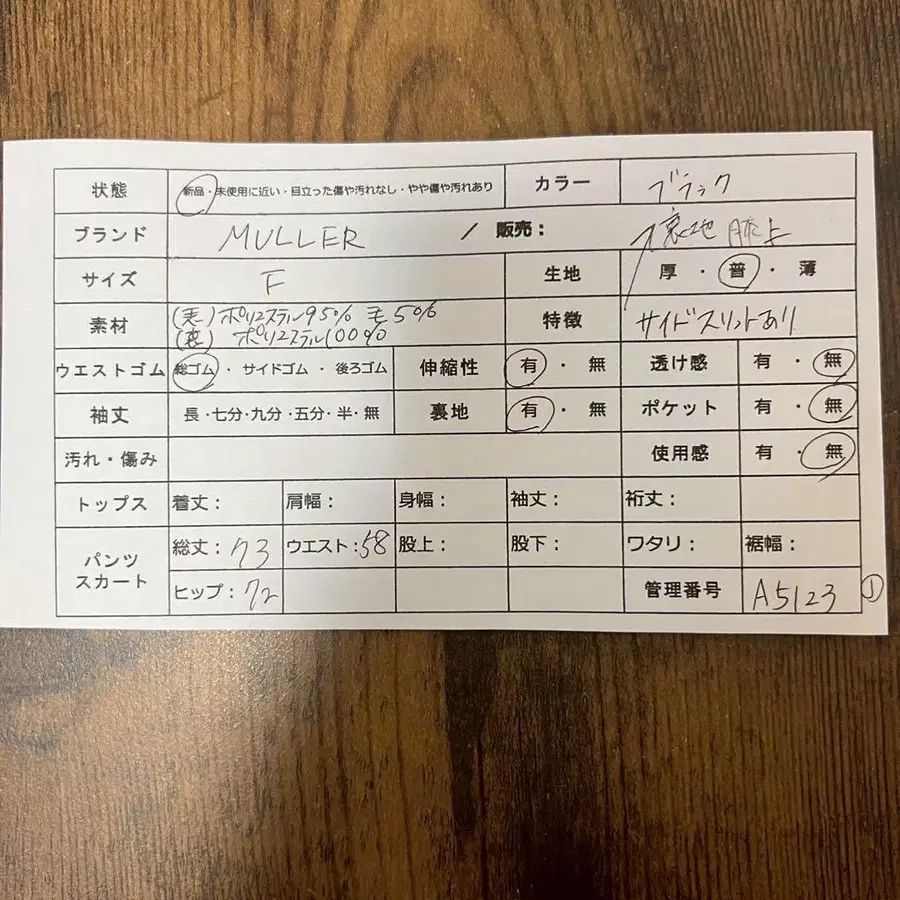 状態 新品・未使用に近い・目立った傷や汚れなし・やや傷や汚れあり カラー ブラック
ブランド MULLER / 販売： 裏地 膝上
サイズ F 生地 厚・普・薄
素材 (表)ポリエステル95% 毛5%
(裏) ポリエステル100%
特徴 サイドスリットあり
ウエストゴム 総ゴム・サイドゴム・後ろゴム 伸縮性 有・無 透け感 有・無
袖丈 長・七分・九分・五分・半・無 裏地 有・無 ポケット 有・無
汚れ・傷み 使用感 有・無
トップス 着丈： 肩幅： 身幅： 袖丈： 裄丈：
パンツ
スカート
総丈：73 ウエスト：58 股上： 股下： ワタリ： 裾幅：
ヒップ：72 管理番号 A5123